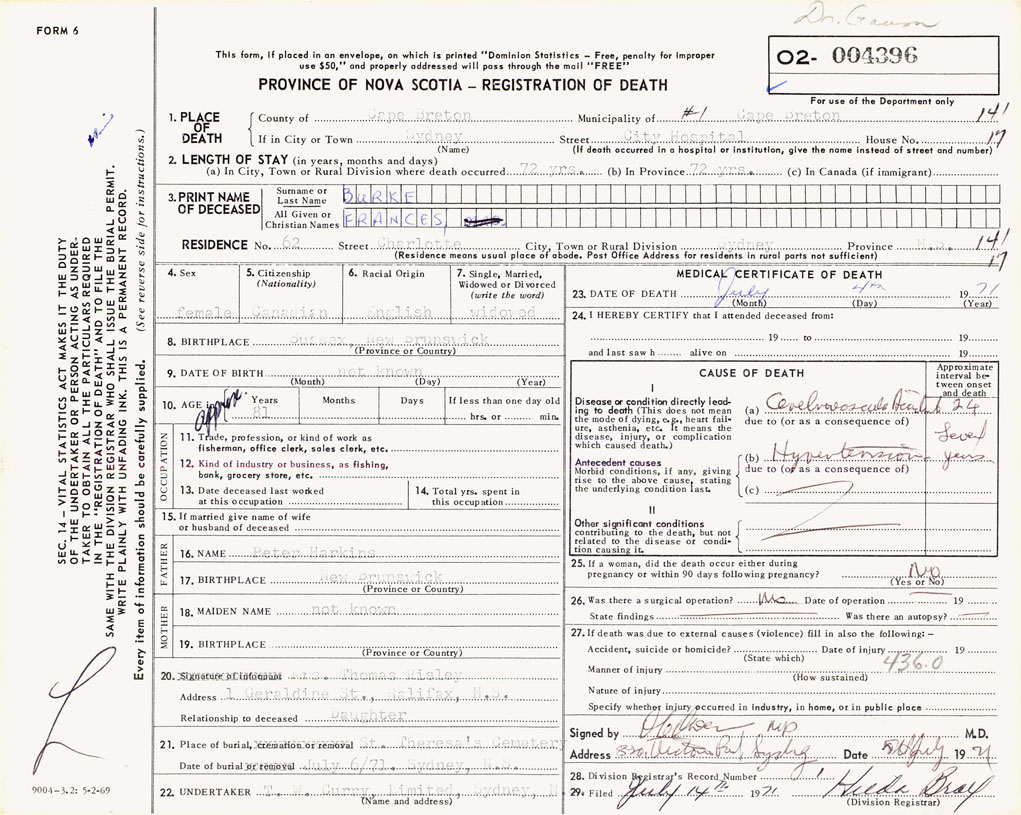 FORM 6
This form, if placed in an envelope, on which is printed "Dominion Statistics – Free, penalty for improper
use $50," and properly addressed will pass through the mail "FREE"
02- 004396
PROVINCE OF NOVA SCOTIA – REGISTRATION OF DEATH
For use of the Department only
1. PLACE OF DEATH
County of Cape Breton Municipality of #1 Cape Breton 141
If in City or Town Sydney Street City Hospital House No. 17
(Name) (If death occurred in a hospital or institution, give the name instead of street and number)
2. LENGTH OF STAY (in years, months and days)
(a) In City, Town or Rural Division where death occurred 72 yrs. (b) In Province 72 yrs. (c) In Canada (if immigrant)
3. PRINT NAME OF DECEASED
Surname or Last Name BURKE
All Given or Christian Names FRANCES,
RESIDENCE No. 62 Street Charlotte City, Town or Rural Division Sydney Province N.S. 141
(Residence means usual place of abode. Post Office Address for residents in rural parts not sufficient) 17
4. Sex
female
5. Citizenship
(Nationality)
Canadian
6. Racial Origin
English
7. Single, Married,
Widowed or Divorced
(write the word)
widowed
8. BIRTHPLACE Sussex, New Brunswick
(Province or Country)
9. DATE OF BIRTH not known
(Month) (Day) (Year)
10. AGE in approx Years Months Days If less than one day old
81 hrs. or min.
OCCUPATION
11. Trade, profession, or kind of work as
fisherman, office clerk, sales clerk, etc.
12. Kind of industry or business, as fishing,
bank, grocery store, etc.
13. Date deceased last worked
at this occupation
14. Total yrs. spent in
this occupation
15. If married give name of wife
or husband of deceased
FATHER
16. NAME Peter Harkins
17. BIRTHPLACE New Brunswick
(Province or Country)
MOTHER
18. MAIDEN NAME not known
19. BIRTHPLACE
(Province or Country)
20. Signature of informant Mrs. Thomas Risley
Address 1 Geraldine St., Halifax, N.S.
Relationship to deceased Daughter
21. Place of burial, cremation or removal St. Theresa's Cemetery
Date of burial or removal July 6/71. Sydney, N.S.
22. UNDERTAKER T. W. Curry, Limited, Sydney, N
(Name and address)
MEDICAL CERTIFICATE OF DEATH
23. DATE OF DEATH July 4th 1971
(Month) (Day) (Year)
24. I HEREBY CERTIFY that I attended deceased from:
19 to 19
and last saw h alive on 19
CAUSE OF DEATH
Approximate
interval be-
tween onset
and death
I
Disease or condition directly lead-
ing to death (This does not mean
the mode of dying, e.g., heart fail-
ure, asthenia, etc. It means the
disease, injury, or complication
which caused death.)
(a) 24
due to (or as a consequence of)
Antecedent causes
Morbid conditions, if any, giving
rise to the above cause, stating
the underlying condition last.
(b) Hypertension years
due to (or as a consequence of)
(c)
II
Other significant conditions
contributing to the death, but not
related to the disease or condi-
tion causing it.
25. If a woman, did the death occur either during
pregnancy or within 90 days following pregnancy? No
(Yes or No)
26. Was there a surgical operation? No Date of operation 19
State findings Was there an autopsy?
27. If death was due to external causes (violence) fill in also the following: –
Accident, suicide or homicide? Date of injury 19
(State which) 436.0
Manner of injury
(How sustained)
Nature of injury
Specify whether injury occurred in industry, in home, or in public place
Signed by M.D.
Address Date July 1971
28. Division Registrar's Record Number 1
29. Filed July 14th 1971 Hilda Bray
(Division Registrar)
SEC. 14 – VITAL STATISTICS ACT MAKES IT THE DUTY
OF THE UNDERTAKER OR PERSON ACTING AS UNDER-
TAKER TO OBTAIN ALL THE PARTICULARS REQUIRED
IN THE "REGISTRATION OF DEATH" AND TO FILE THE
SAME WITH THE DIVISION REGISTRAR WHO SHALL ISSUE THE BURIAL PERMIT.
WRITE PLAINLY WITH UNFADING INK. THIS IS A PERMANENT RECORD.
Every item of information should be carefully supplied. (See reverse side for instructions.)
9004-3.2: 5-2-69